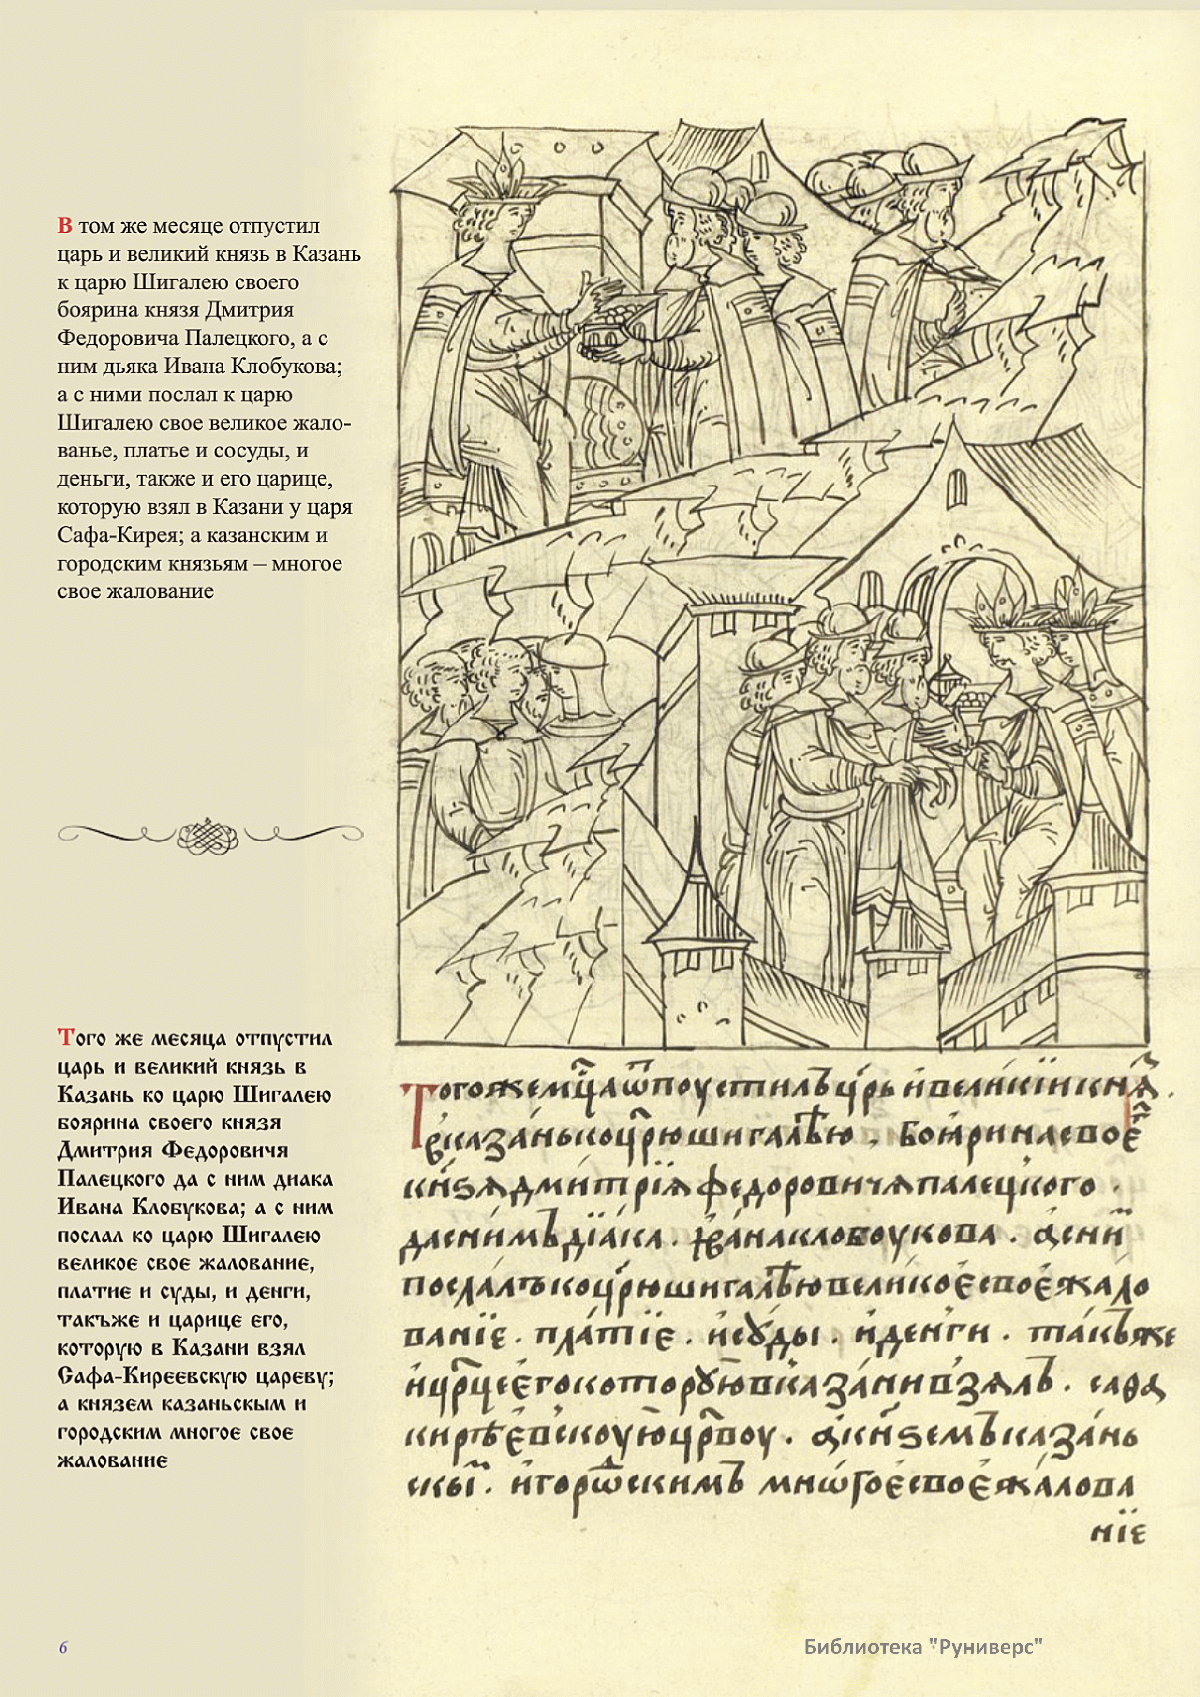 В том же месяце отпустил
царь и великий князь в Казань
к царю Шигалею своего
боярина князя Дмитрия
Федоровича Палецкого, а с
ним дьяка Ивана Клобукова;
а с ними послал к царю
Шигалею свое великое жало-
ванье, платье и сосуды, и
деньги, также и его царице,
которую взял в Казани у царя
Сафа-Кирея; а казанским и
городским князьям – многое
свое жалование
Того же месяца отпустил
царь и великий князь в
Казань ко царю Шигалею
боярина своего князя
Дмитрия Федоровичя
Палецкого да с ним диака
Ивана Клобукова; а с ним
послал ко царю Шигалею
великое свое жалование,
платие и суды, и денги,
такъже и царице его,
которую в Казани взял
Сафа-Киреевскую цареву;
а князем казаньскым и
городским многое свое
жалование
Тогожемⷭ҇ца ѿпоустилъ цр҃ь ивеликїи кнꙗ҃з
вказанькоцр҃юшигалѣю . боꙗринасвоєⷢ҇
кнѕѧдмитрїѧ федоровичѧпалецкого .
даснимъдїака . иванаклобоукова . асниⷨ
послалъкоцр҃юшигалѣювеликоєсвоєжало
ванїє . платїє . исꙋды . иденги . такъже
ицр҃цеєгокоторꙋювказанивзѧлъ . сафа
кирѣєвскоуюцр҃воу . акнѕемъказань
скыⷨ . игорѡⷣскимъ мнѡгоєсвоєжалова
нїе
6
Библиотека "Руниверс"